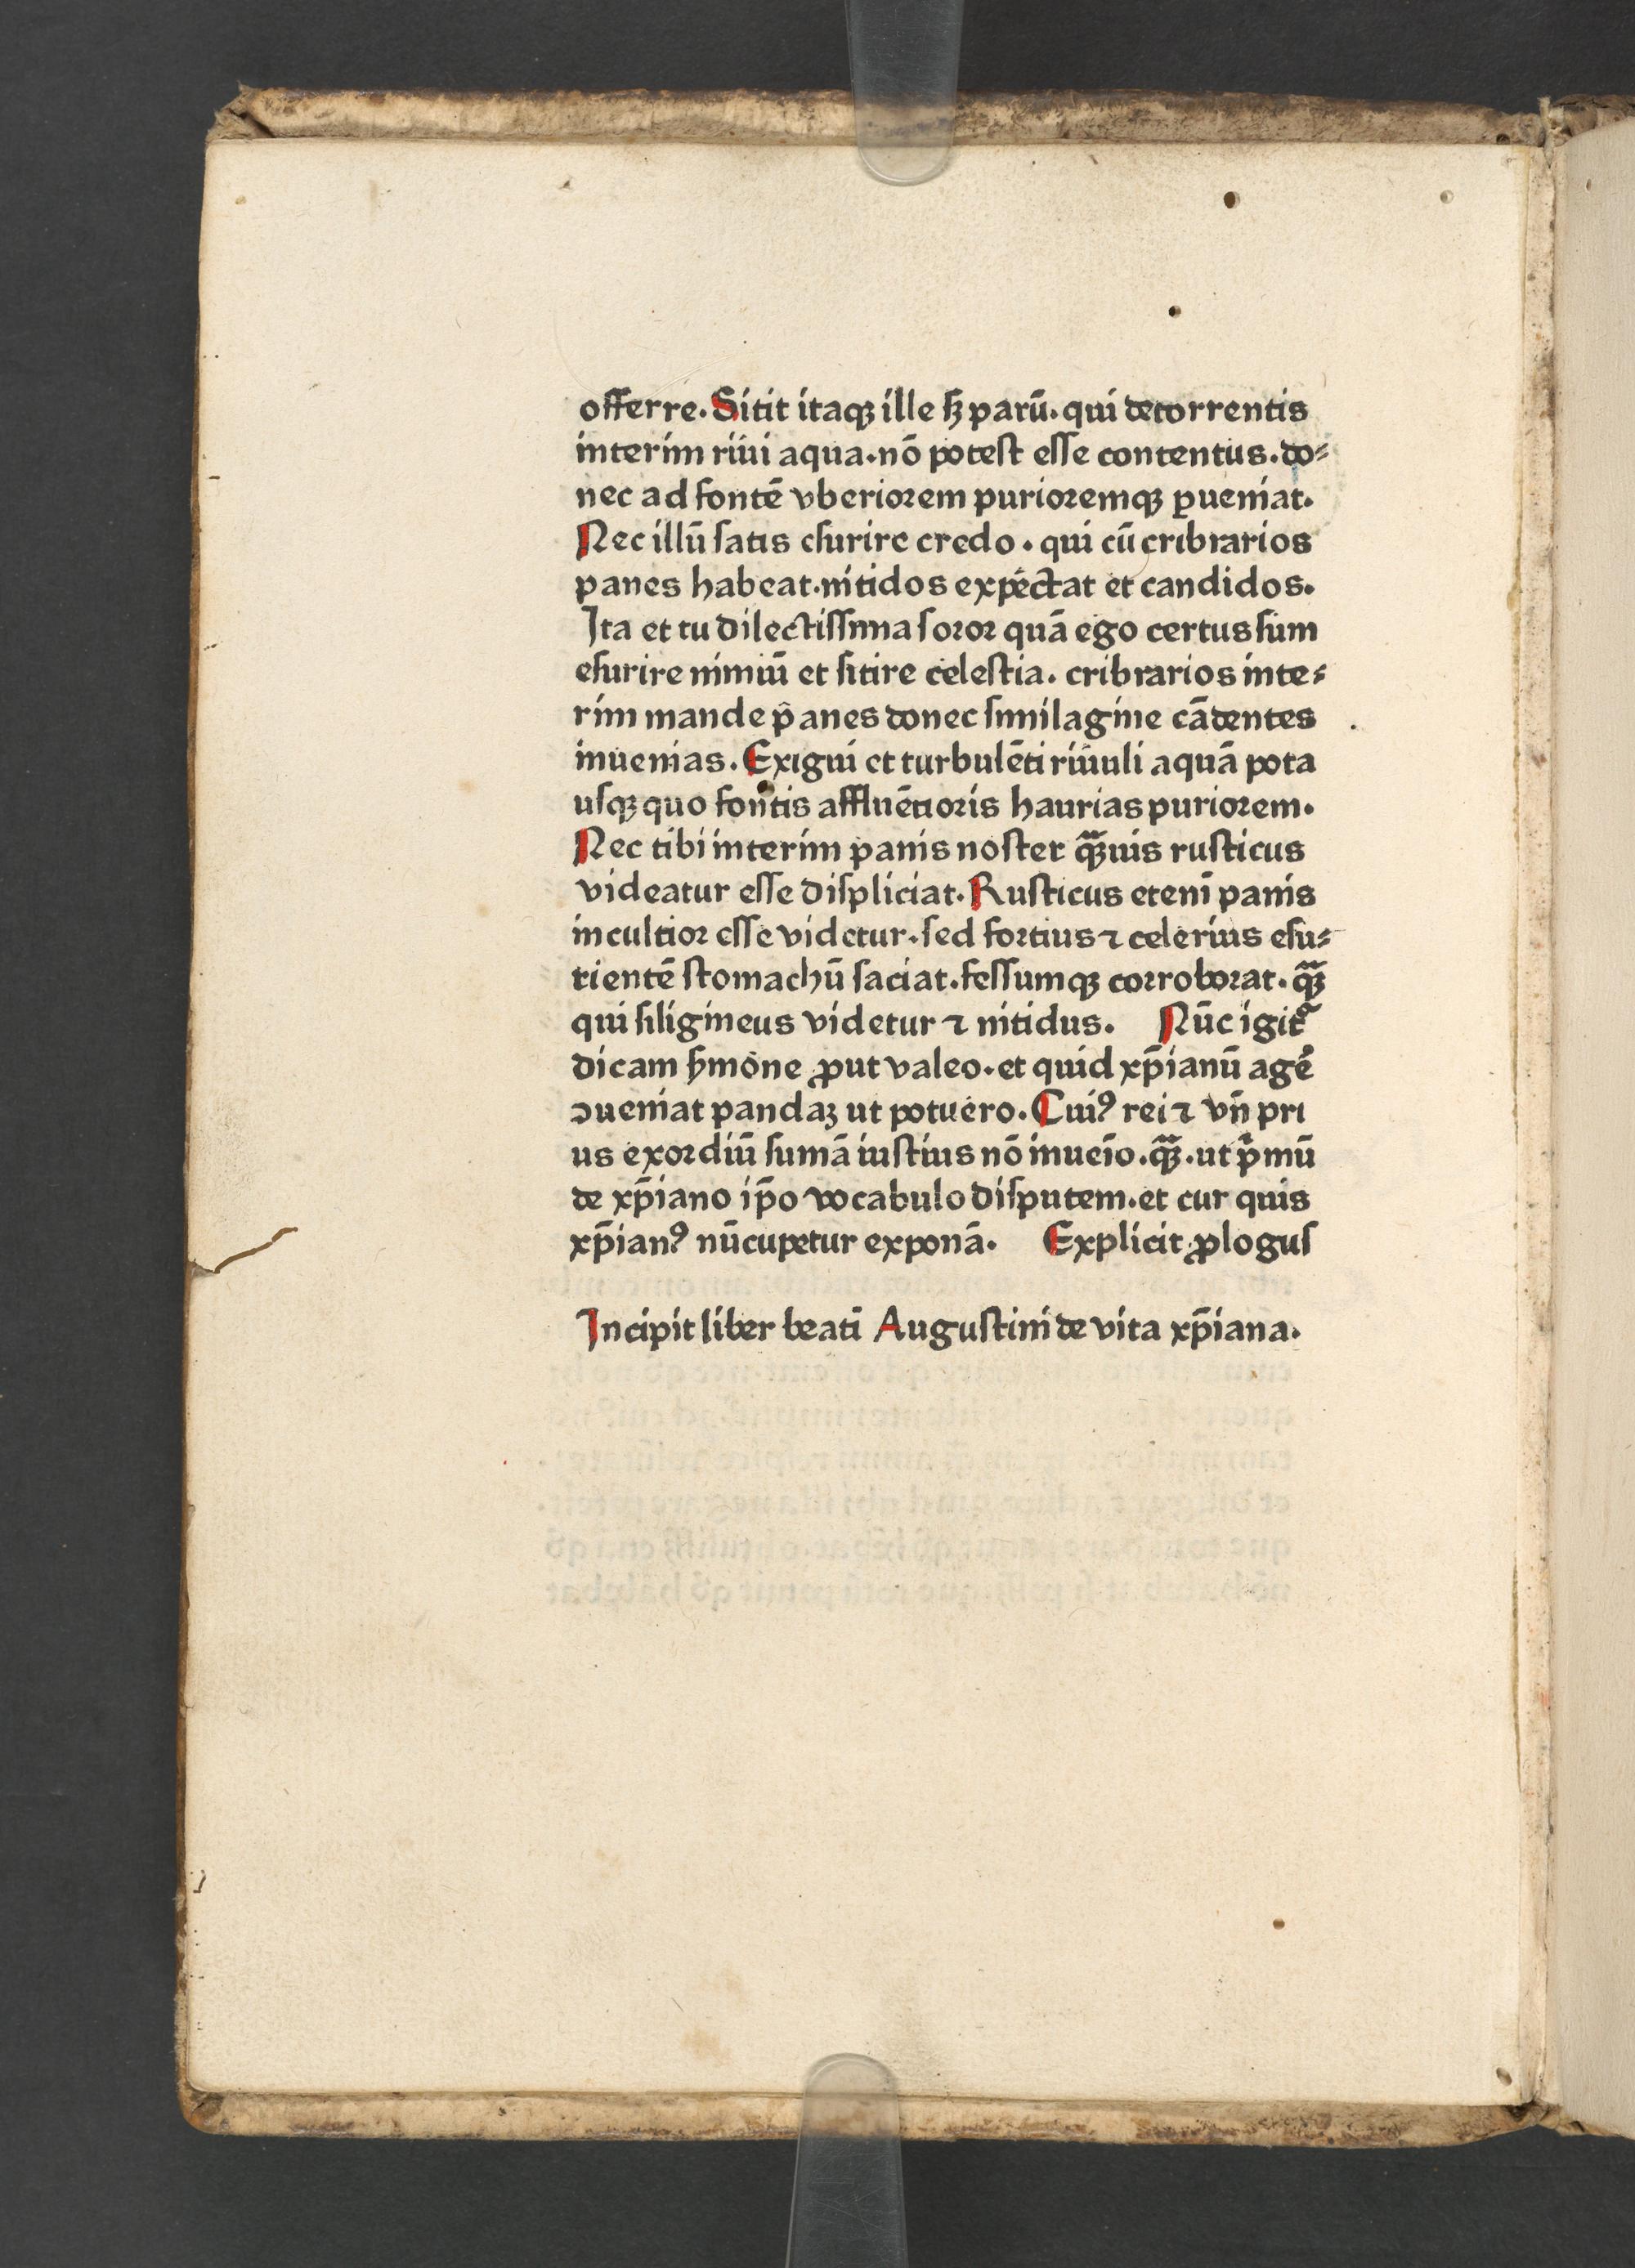 offerre. Sitit itaqꝫ ille ſꝫ parū. qui decorrentis
interim riui aqua. nō poteſt eſſe contentus. do⸗
nec ad fontē vberiorem purioremqꝫ ꝑueniat.
Nec illū ſatis eſurire credo. qui cū cribrarios
panes habeat. nitidos expectat et candidos.
Ita et tu dilectiſſima ſoror quā ego certus ſum
eſurire nimiū et ſitire celeſtia. cribrarios inte⸗
rim mande panes donec ſimilagine cādentes
inuenias. Exigui et turbulēti riuuli aquā pota
uſqꝫ quo fontis affluētioris haurias puriorem.
Nec tibi interim panis noſter qꝫuis ruſticus
videatur eſſe diſpliciat. Ruſticus etenī panis
incultior eſſe videtur. ſed fortius ⁊ celerius eſu⸗
rientē ſtomachū ſaciat. feſſumqꝫ corroborat. qꝫ
qui ſiligineus videtur ⁊ nitidus. Nūc igit᷑
dicam ẜmone ꝓut valeo. et quid xp̄ianū agē
ꝯueniat pandaꝫ ut potuero. Cuiꝰ rei ⁊ vn̄ pri
us exordiū ſumā iuſtius nō inueīo. qꝫ. ut pͥmū
de xp̄iano ip̄o vocabulo diſputem. et cur quis
xp̄ianꝰ nūcupetur exponā. Explicit ꝓloguſ
Incipit liber beati Auguſtini de vita xp̄iana.